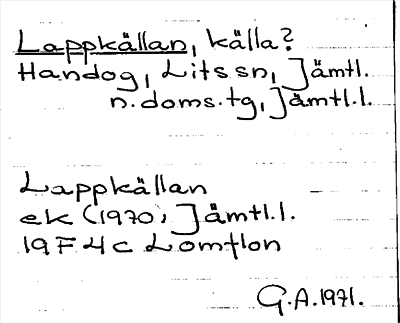 Lappkällan, källa?
Handog, Lits sn, Jämtl.
n. doms. tg, Jämtl. l.
Lappkällan
ek (1970) Jämtl. l.
19F 4c Lomtlon
G. A. 1971.